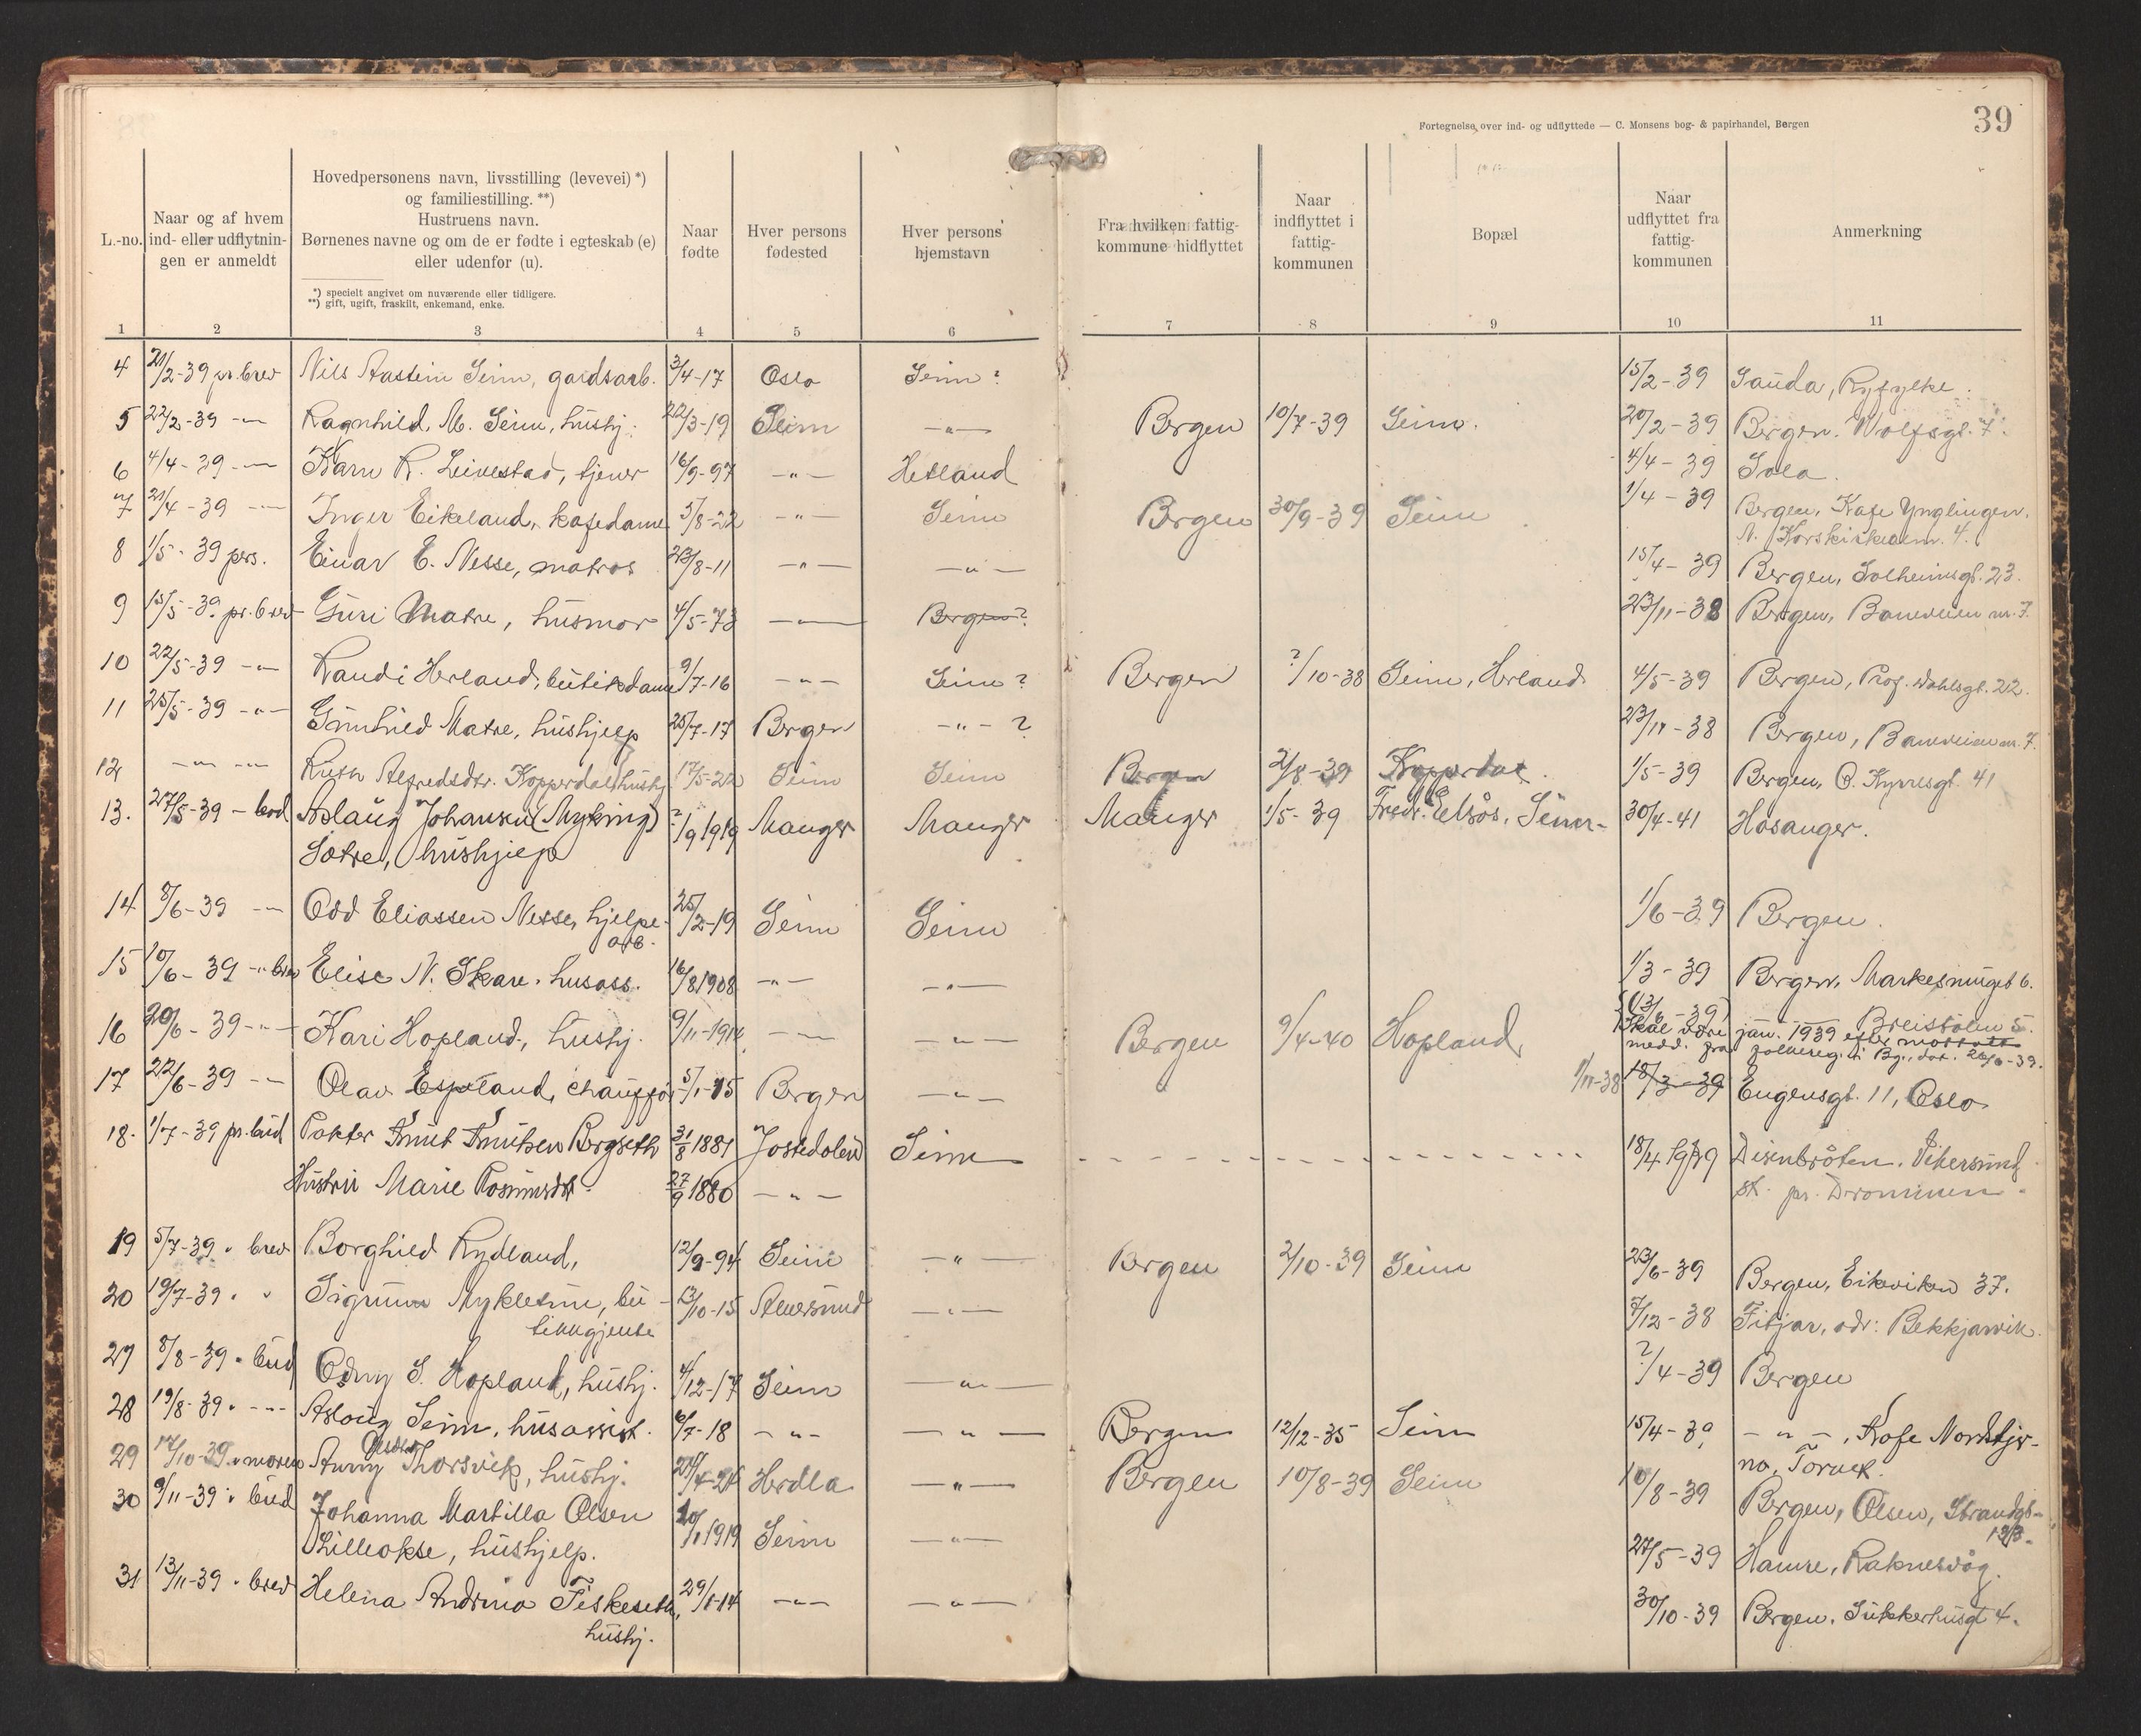 39
Fortegnelse over ind- og udflyttede — C. Monsens bog- & papirhandel, Bergen
L.-no.
Naar og af hvem
ind- eller udflytnin-
gen er anmeldt
Hovedpersonens navn, livsstilling (levevei) *)
og familiestilling. **)
Hustruens navn.
Børnenes navne og om de er fødte i egteskab (e)
eller udenfor (u).
*) specielt angivet om nuværende eller tidligere.
**) gift, ugift, fraskilt, enkemand, enke.
Naar
fødte
Hver persons
fødested
Hver persons
hjemstavn
Fra hvilken fattig-
kommune hidflyttet
Naar
indflyttet i
fattig-
kommunen
Bopæl
Naar
udflyttet fra
fattig-
kommunen
Anmerkning
1 2 3 4 5 6 7 8 9 10 11
4 21/2-39 pr. brev Nils Aastein Seim, gardsarb. 3/4-17 Oslo Seim? 15/2-39 Sauda, Ryfylke.
5 22/2-39 -"- Ragnhild, M. Seim, hushj. 22/3-19 Seim -"- Bergen 10/7-39 Seim. 20/2-39 Bergen. Wolfsgt. 7.
6 4/4-39 -"- Karn R. Leivestad, tjener 16/9-97 -"- Hetland 4/4-39 Sola.
7 21/4-39 -"- Inger Eikeland, kafedame 5/8-22 -"- Seim Bergen 30/9-39 Seim 1/4-39 Bergen, Kafe Ynglingen.
N. Korskirkealm. 4.
8 1/5-39 pers. Einar E. Nesse, matros 23/8-11 -"- -"- 15/4-39 Bergen, Solheimsgt. 23.
9 15/5-39 pr. brev Guri Matre, husmor 4/5-73 -"- Bergen? 23/11-38 Bergen, Baneveien nr. 7.
10 22/5-39 -"- Randi Herland, butikdame 9/7-16 -"- Seim? Bergen ?/10-38 Seim, Herland 4/5-39 Bergen, Prof. Dahlsgt. 22.
11 25/5-39 -"- Gunhild Matre, hushjelp 25/7-17 Bergen -"- ? 23/11-38 Bergen, Baneveien nr. 7.
12 -"- -"- Ruth Alfredsdtr. Kopperdal, hushj. 17/5-22 Seim Seim Bergen 2/8-39 Kopperdal. 1/5-39 Bergen, O. Kyrresgt. 41
13. 27/5-39 - bod Aslaug Johansen (Myking) ?/9 1919 Manger Manger Manger 1/5-39 Fredr. Elsås, Seim- 30/4-41 Hosanger.
Sætre, hushjelp
14 8/6-39 -"- Odd Eliassen Nesse, hjelpe- 25/2-19 Seim Seim 1/6-39 Bergen.
arb.
15 10/6-39 -"- brev Elise N. Skare. husass. 16/8 1908 -"- -"- 1/3-39 Bergen, Markesmuget 6.
16 20/6-39 -"- Kari Hopland, hushj. 9/11-1914 -"- -"- Bergen 9/4-40 Hopland (13/6-39) Breistølen 5.
Skal være jan. 1939 efter mottatt
medd. fra folkereg. i Bg., dat. 26/6-39.
17 22/6-39 -"- Olav Espeland, chauffør 5/1-15 Bergen -"- 1/11-38 18/3-39 Eugensgt. 11, Oslo
18. 1/7-39 pr. bud Pakter Knut Knutsen Bergseth 31/8 1881 Jostedalen Seim 18/4 1939 Disenbråten. Vikersund
Hustru Marie Rasmusdtr. 27/9 1880 -"- st. pr. Drammen.
19 5/7-39 " brev Borghild Rydland, 12/9-94 Seim -"- Bergen 2/10-39 Seim 23/6-39 Bergen, Eikeviken 37.
20 19/7-39 " " Sigrunn Mykletun, bu- 13/10-15 Alversund -"- 7/12-38 Fitjar, adr: Bekkjarvik.
tikkgjente
27 8/8-39 " bud Odny S. Hopland, hushj. 4/12-17 Seim -"- ?/4-39 Bergen
28 19/8-39 " -"- Aslaug Seim, husassist. 6/7-18 -"- -"- Bergen 12/12-35 Seim 15/4-39 -"-, Kafe Nordstjer-
no, Torvet.
29 14/10-39 " moren Anny Olsdtr. Thorsvik, hushj. 24/4-24 Herdla -"- Bergen 10/8-39 Seim 10/8-39 Bergen, Olsen, Strandgt-
123.
30 9/11-39 " bud Johanna Martilla Olsen 20/1 1919 Seim -"- 27/5-39 Hamre, Raknesvåg.
Lilleokse, hushjelp.
31 13/11-39 " brev Helena Andrina Fiskeseth, 29/1-14 -"- -"- 30/10-39 Bergen. Sukkerhusgt 4.
hushj.